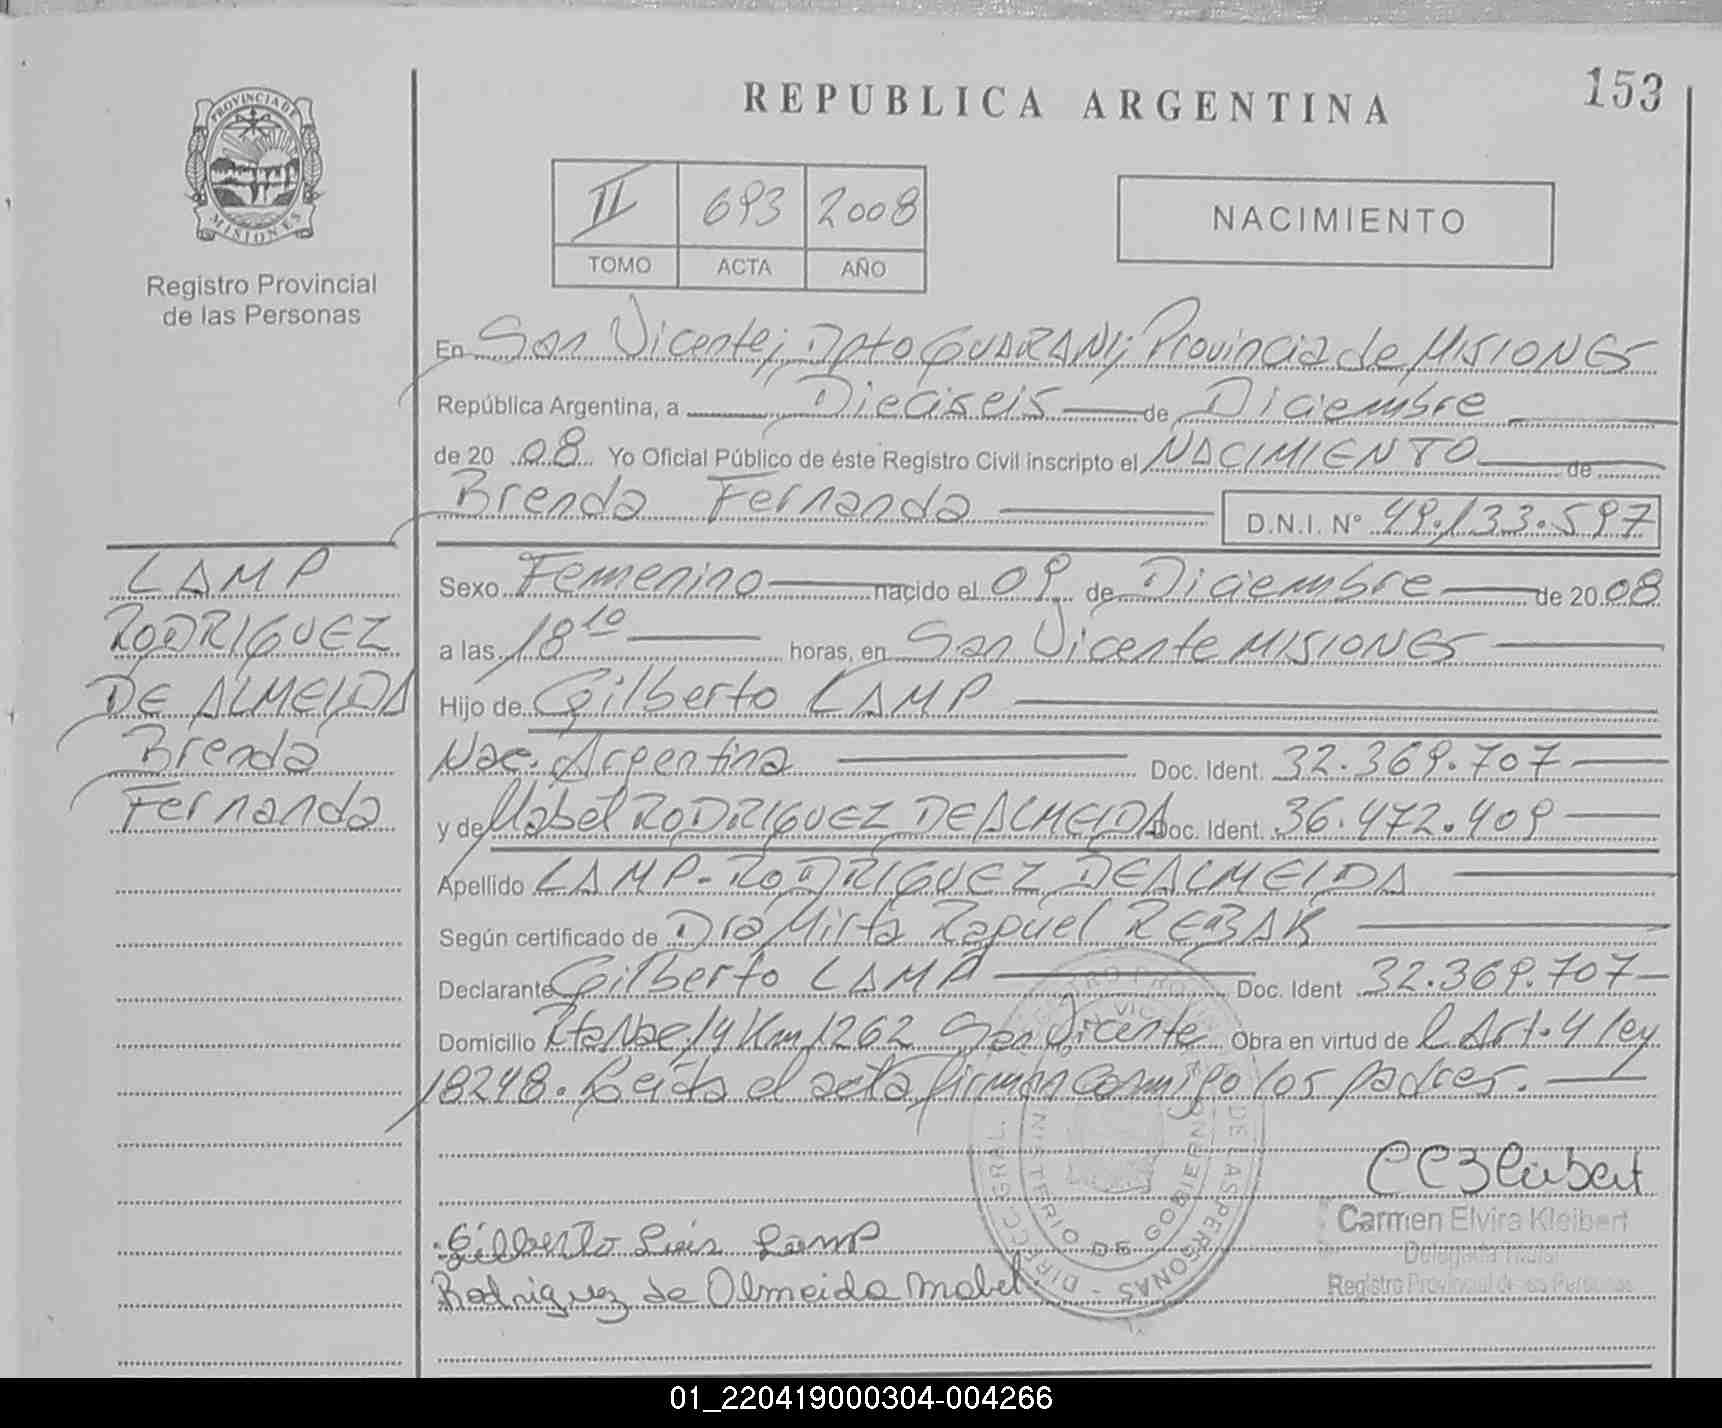 153
REPUBLICA ARGENTINA
PROVINCIA DE
MISIONES
Registro Provincial
de las Personas
II 693 2008
TOMO ACTA AÑO
NACIMIENTO
En San Vicente; Dpto GUARANI; Provincia de MISIONES
República Argentina, a Dieciseis de Diciembre
de 20 08 Yo Oficial Público de éste Registro Civil inscripto el NACIMIENTO de
Brenda Fernanda D.N.I. Nº 49.133.597
LAMP
RODRIGUEZ
DE ALMEIDA
Brenda
Fernanda
Sexo Femenino nacido el 09 de Diciembre de 20 08
a las 18 10 horas, en San Vicente MISIONES
Hijo de Gilberto LAMP
Nac. Argentina Doc. Ident. 32.369.707
y de Mabel RODRIGUEZ DE ALMEIDA Doc. Ident. 36.472.409
Apellido LAMP - RODRIGUEZ DE ALMEIDA
Según certificado de Dra Mirta Raquel REBAK
Declarante Gilberto LAMP Doc. Ident 32.369.707
Domicilio Rta Nac 14 Km 1262 San Vicente Obra en virtud de l Art. 4 ley
18248. Leida el acta firman conmigo los padres.
Carmen Elvira Kleibert
Delegada Titular
Registro Provincial de las Personas
Gilberto Luis Lamp
Rodriguez de Olmeida Mabel
DIRECC. GRAL. REGISTRO PROVINCIAL DE LAS PERSONAS
MINISTERIO DE GOBIERNO
01_220419000304-004266